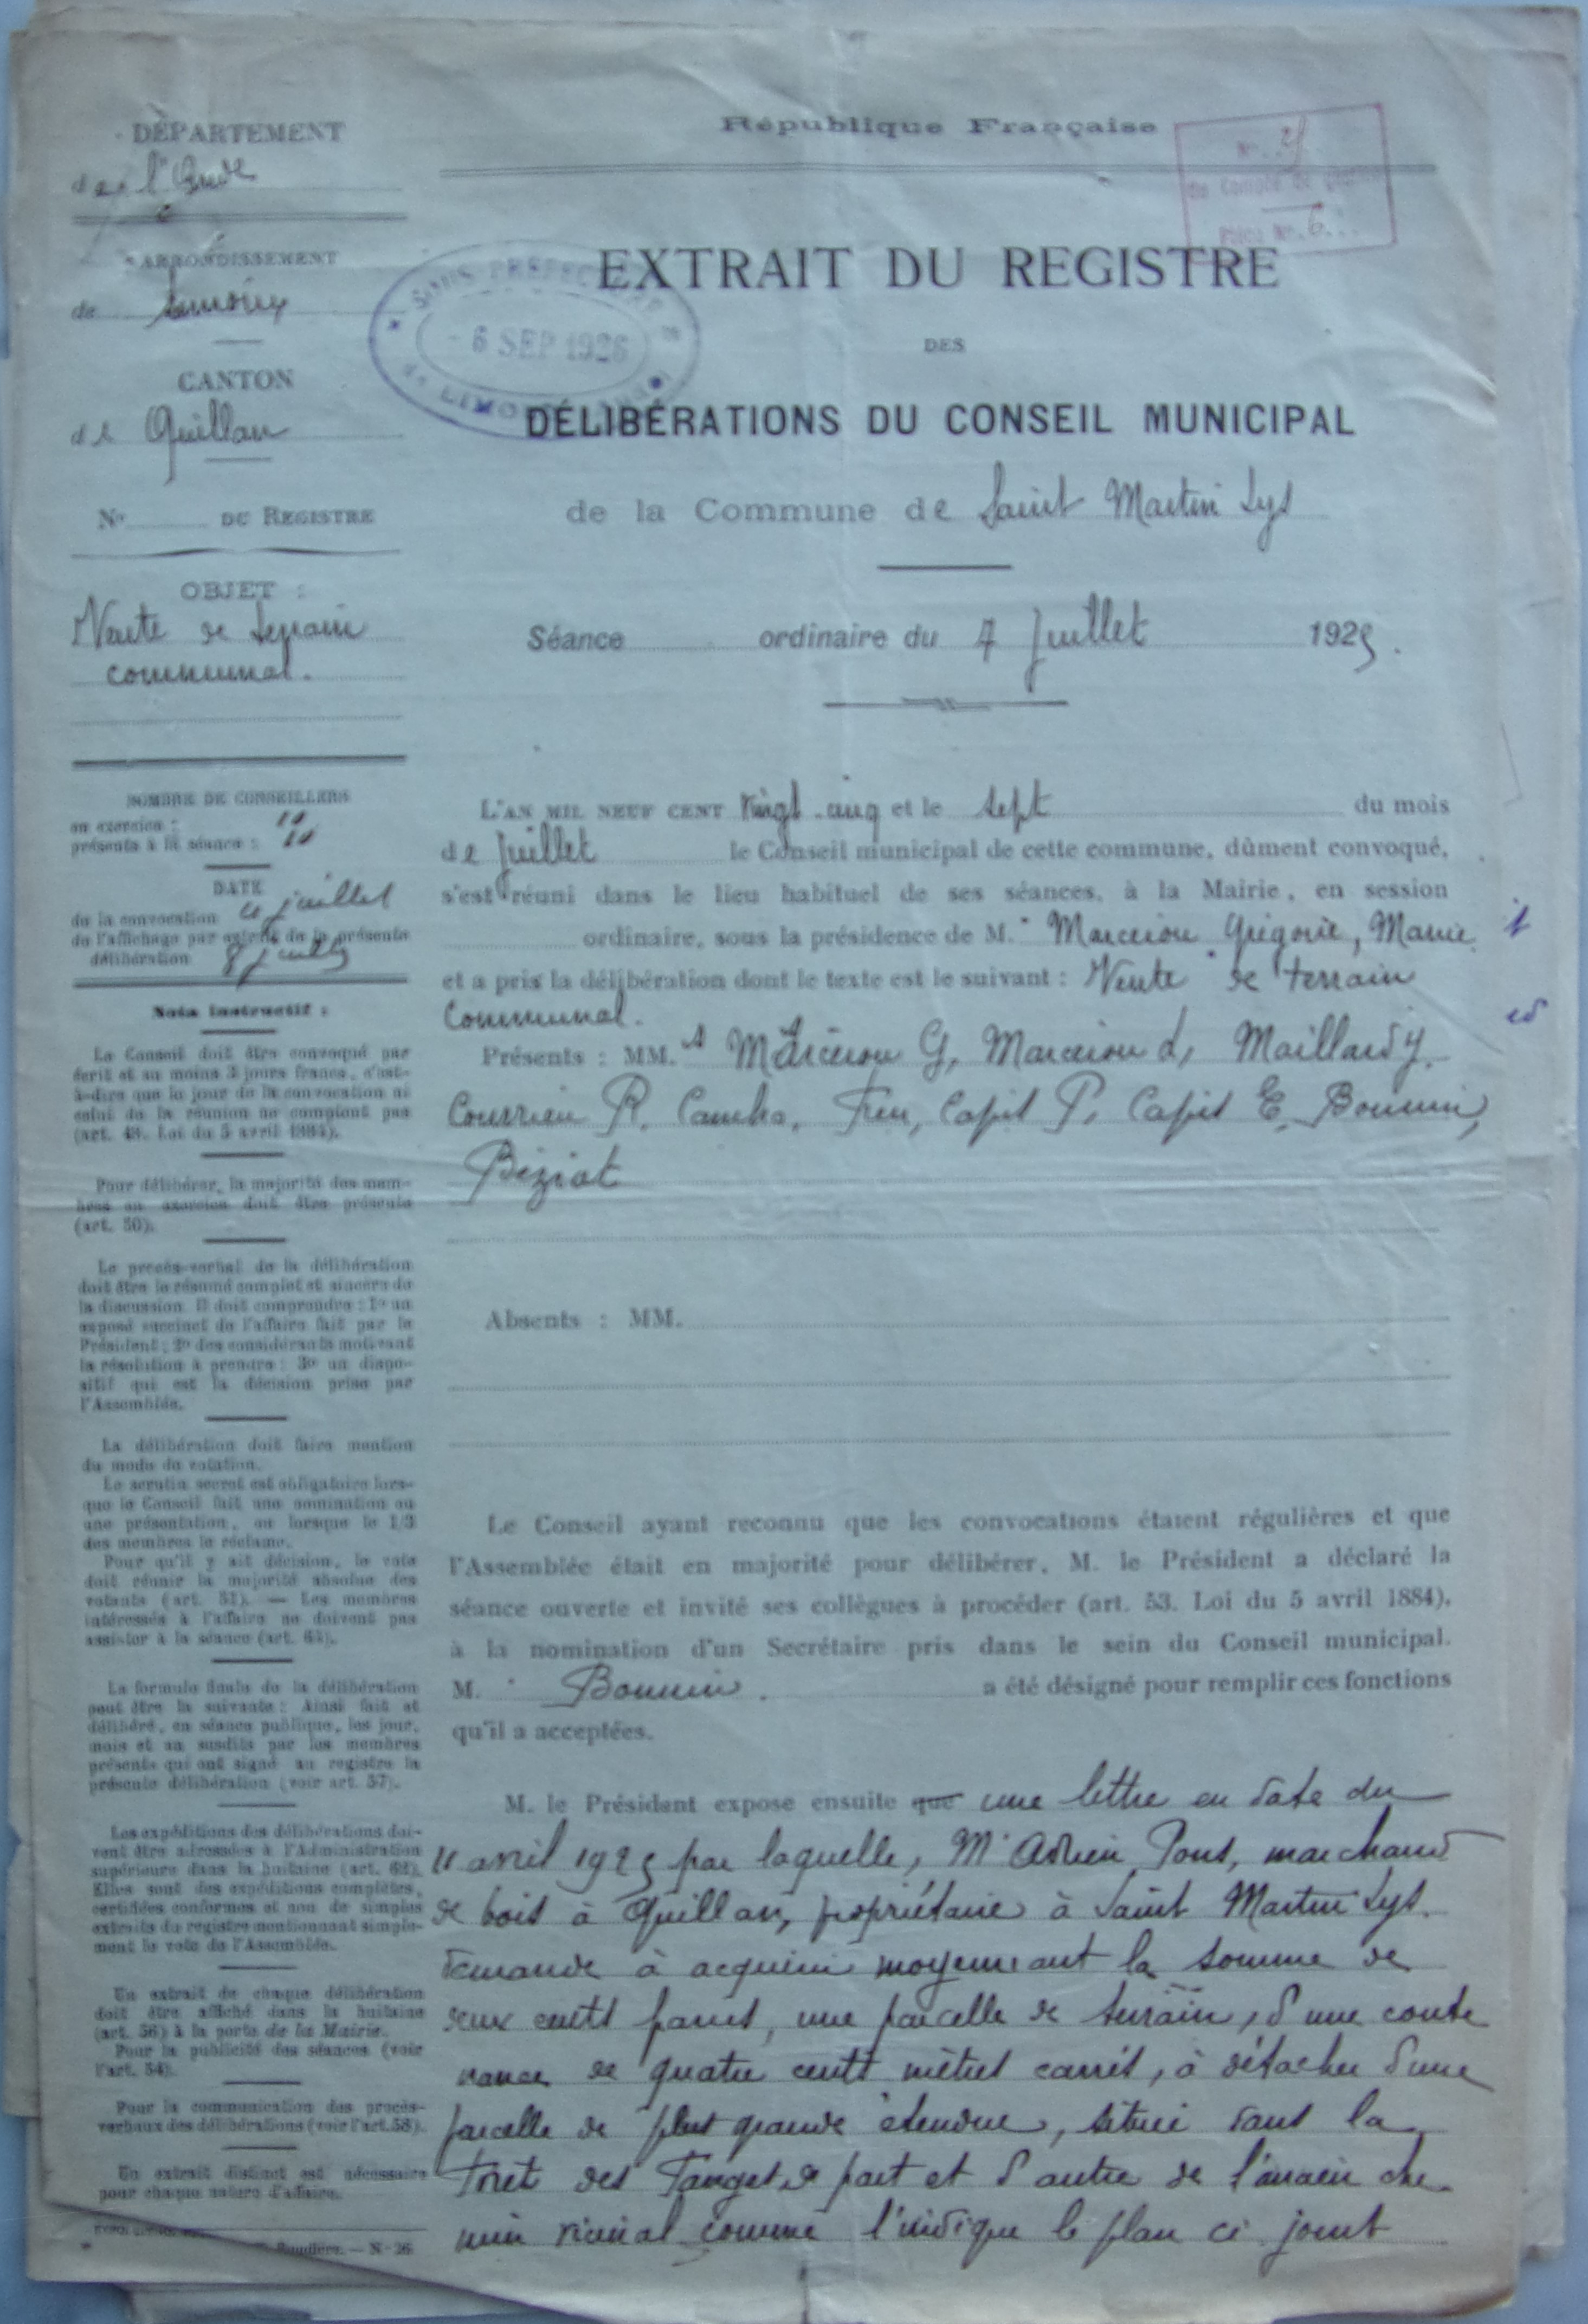 DÉPARTEMENT
de l'Aude
ARRONDISSEMENT
de Limoux
CANTON
de Quillan
No DU REGISTRE
OBJET :
Vente de terrain
communal.
NOMBRE DE CONSEILLERS
en exercice : 10
présents à la séance : 10
DATE
de la convocation 4 juillet
de l'affichage par extrait de la présente
délibération 8 juillet
Nota instructif :
Le Conseil doit être convoqué par
écrit et au moins 3 jours francs, c'est-
à-dire que le jour de la convocation ni
celui de la réunion ne comptent pas
(art. 48. Loi du 5 avril 1884).
Pour délibérer, la majorité des mem-
bres en exercice doit être présente
(art. 50).
Le procès-verbal de la délibération
doit être le résumé complet et sincère de
la discussion. Il doit comprendre : 1o un
exposé succinct de l'affaire fait par le
Président ; 2o des considérants motivant
la résolution à prendre ; 3o un dispo-
sitif qui est la décision prise par
l'Assemblée.
La délibération doit faire mention
du mode de votation.
Le scrutin secret est obligatoire lors-
que le Conseil fait une nomination ou
une présentation, ou lorsque le 1/3
des membres le réclame.
Pour qu'il y ait décision, le vote
doit réunir la majorité absolue des
votants (art. 51). — Les membres
intéressés à l'affaire ne doivent pas
assister à la séance (art. 64).
La formule finale de la délibération
peut être la suivante : Ainsi fait et
délibéré, en séance publique, les jour,
mois et an susdits par les membres
présents qui ont signé au registre la
présente délibération (voir art. 57).
Les expéditions des délibérations doi-
vent être adressées à l'Administration
supérieure dans la huitaine (art. 62).
Elles sont des expéditions complètes,
certifiées conformes et non de simples
extraits du registre mentionnant simple-
ment le vote de l'Assemblée.
Un extrait de chaque délibération
doit être affiché dans la huitaine
(art. 56) à la porte de la Mairie.
Pour la publicité des séances (voir
l'art. 54).
Pour la communication des procès-
verbaux des délibérations (voir l'art. 58).
Un extrait distinct est nécessaire
pour chaque nature d'affaire.
— N° 26
République Française
No. 21
du Compte de gestion
Pièce No. 6...
SOUS PRÉFECTURE
- 6 SEP 1926
de LIMOUX
EXTRAIT DU REGISTRE
DES
DÉLIBÉRATIONS DU CONSEIL MUNICIPAL
de la Commune de Saint Martin Lys
Séance ordinaire du 7 Juillet 1925.
L'AN MIL NEUF CENT vingt-cinq et le sept du mois
de Juillet le Conseil municipal de cette commune, dûment convoqué,
s'est réuni dans le lieu habituel de ses séances, à la Mairie, en session
ordinaire, sous la présidence de M. Marcerou Grégoire, Maire
et a pris la délibération dont le texte est le suivant : Vente de terrain
Communal.
Présents : MM. Marcerou G, Marcerou L, Maillard
Courrieu R. Cambo. Freu, Capit P, Capit E, Bounin,
Béziat
Absents : MM.
Le Conseil ayant reconnu que les convocations étaient régulières et que
l'Assemblée était en majorité pour délibérer, M. le Président a déclaré la
séance ouverte et invité ses collègues à procéder (art. 53. Loi du 5 avril 1884),
à la nomination d'un Secrétaire pris dans le sein du Conseil municipal.
M. Bounin. a été désigné pour remplir ces fonctions
qu'il a acceptées.
M. le Président expose ensuite que une lettre en date du
11 avril 1925 par laquelle, Mr Adrien Pons, marchand
de bois à Quillan, propriétaire à Saint Martin Lys.
demande à acquérir moyennant la somme de
deux cents francs, une parcelle de terrain, d'une conte
nance de quatre cents mètres carrés, à détacher d'une
parcelle de plus grande étendue, située dans la
Foret des Fanges de part et d'autre de l'ancien che
min vicinal comme l'indique le plan ci joint